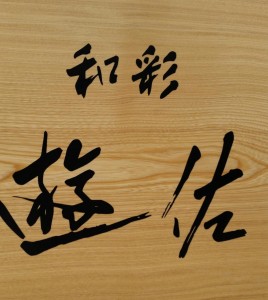 和彩
遊佐